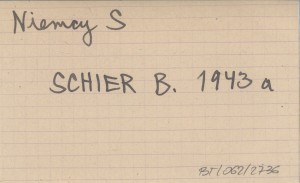 Niemcy S
SCHIER B. 1943 a
BT/062/2736